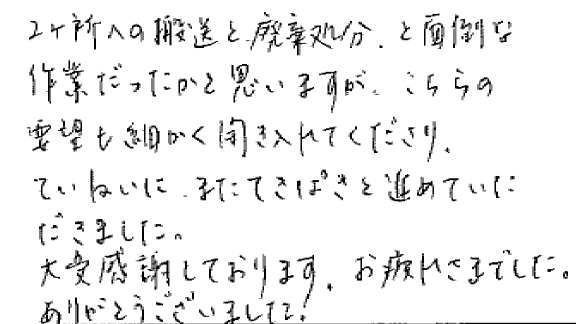 2ヶ所への搬送と廃棄処分、と面倒な
作業だったかと思いますが、こちらの
要望も細かく聞き入れてくださり、
ていねいに、またてきぱきと進めていた
だきました。
大変感謝しております。お疲れさまでした。
ありがとうございました!